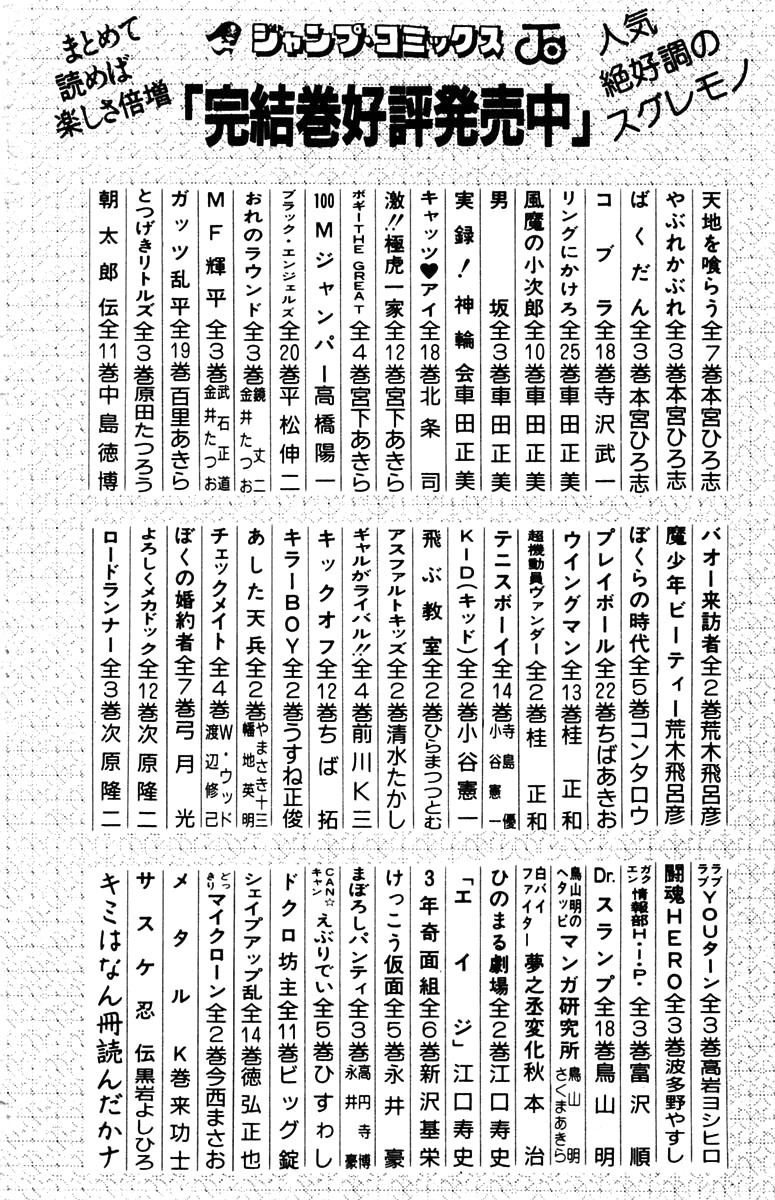 まとめて
読めば
楽しさ倍増
ジャンプ・コミックス
人気
絶好調の
スグレモノ
「完結巻好評発売中」
天地を喰らう全7巻本宮ひろ志
やぶれかぶれ全3巻本宮ひろ志
ばくだん全3巻本宮ひろ志
コブラ全18巻寺沢武一
リングにかけろ全25巻車田正美
風魔の小次郎全10巻車田正美
男坂全3巻車田正美
実録!神輪会車田正美
キャッツ♥アイ全18巻北条司
激!!極虎一家全12巻宮下あきら
ボギーTHE GREAT全4巻宮下あきら
100Mジャンパー高橋陽一
ブラック・エンジェルズ全20巻平松伸二
おれのラウンド全3巻鏡丈二 金井たつお
MF輝平全3巻武石正道 金井たつお
ガッツ乱平全19巻百里あきら
とつげきリトルズ全3巻原田たつろう
朝太郎伝全11巻中島徳博
バオー来訪者全2巻荒木飛呂彦
魔少年ビーティー荒木飛呂彦
ぼくらの時代全5巻コンタロウ
プレイボール全22巻ちばあきお
ウイングマン全13巻桂正和
超機動員ヴァンダー全2巻桂正和
テニスボーイ全14巻寺島優 小谷憲一
KID(キッド)全2巻小谷憲一
飛ぶ教室全2巻ひらまつつとむ
アスファルトキッズ全2巻清水たかし
ギャルがライバル!!全4巻前川K三
キックオフ全12巻ちば拓
キラーBOY全2巻うすね正俊
あした天兵全2巻やまさき十三 幡地英明
チェックメイト全4巻W・ウッド 渡辺修己
ぼくの婚約者全7巻弓月光
よろしくメカドック全12巻次原隆二
ロードランナー全3巻次原隆二
ラブラブYOUターン全3巻高岩ヨシヒロ
闘魂HERO全3巻波多野やすし
ガクエン情報部H・I・P・全3巻富沢順
Dr.スランプ全18巻鳥山明
鳥山明のヘタッピマンガ研究所鳥山明 さくまあきら
白バイファイター夢之丞変化秋本治
ひのまる劇場全2巻江口寿史
「エイジ」江口寿史
3年奇面組全6巻新沢基栄
けっこう仮面全5巻永井豪
まぼろしパンティ全3巻高円寺博 永井豪
CAN☆キャンえぶりでい全5巻ひすわし
ドクロ坊主全11巻ビッグ錠
シェイプアップ乱全14巻徳弘正也
どっきりマイクローン全2巻今西まさお
メタルK巻来功士
サスケ忍伝黒岩よしひろ
キミはなん冊読んだかナ